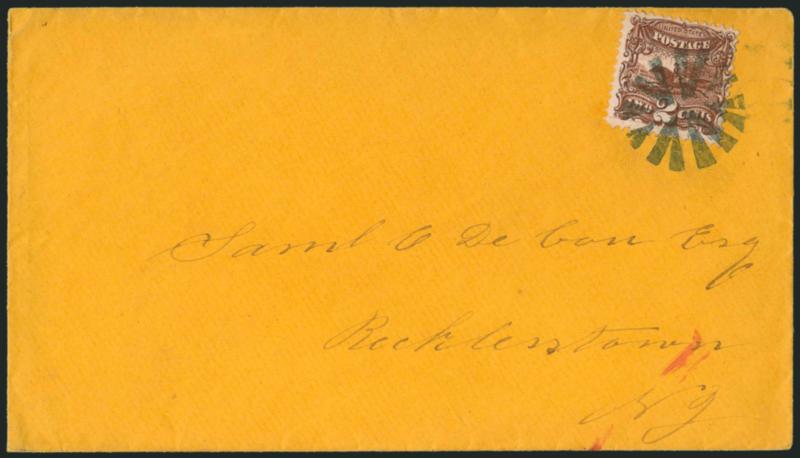 UNITED STATES
POSTAGE
TWO 2 CENTS
Saml C De Cou Esq
Recklesstown
NJ